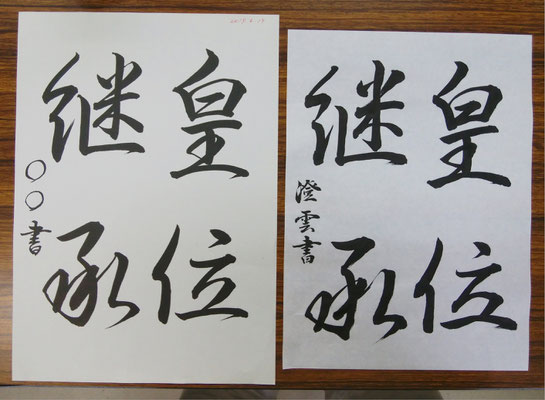 皇位
継承
〇〇書
皇位
継承
澄雲書